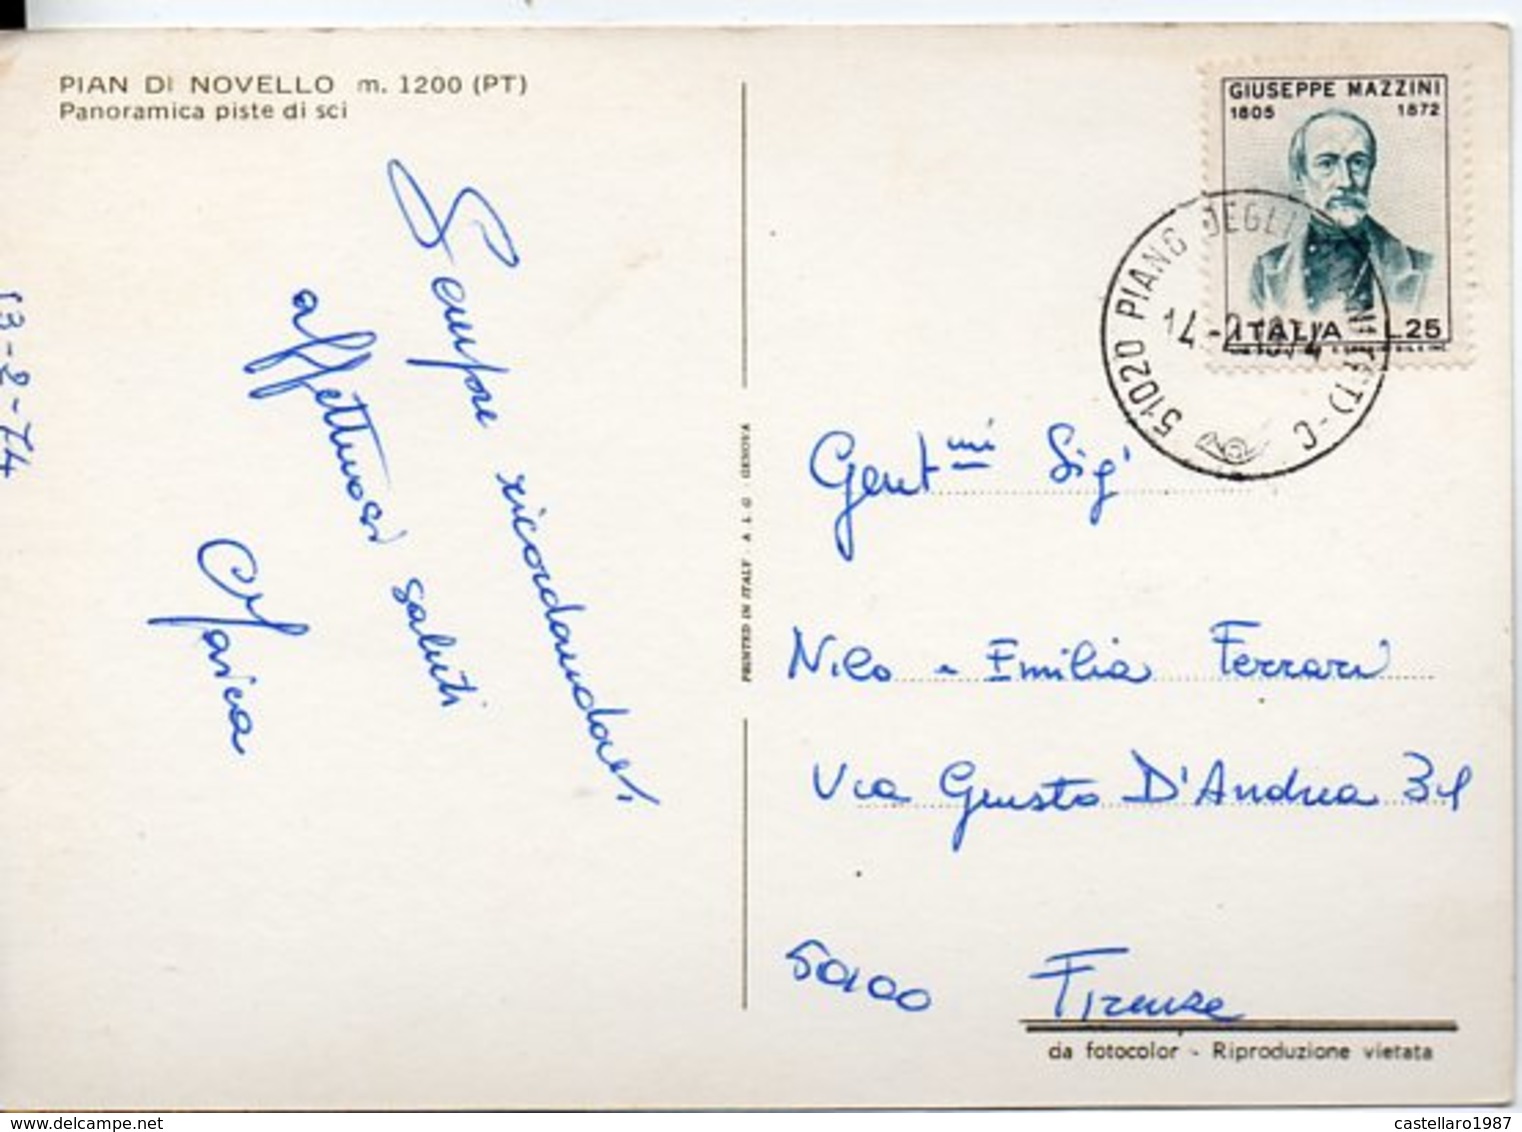 PIAN DI NOVELLO m. 1200 (PT)
Panoramica piste di sci
13-2-74
Sempre ricordandovi
affettuosi saluti
Marica
PRINTED IN ITALY - A L G - GENOVA
GIUSEPPE MAZZINI
1805 1872
ITALIA L.25
51020 PIANO DEGLI
14-2-1974
Gent.mi Sig.
Nilo - Emilia Ferrari
Via Giusto D'Andrea 31
50100 Firenze
da fotocolor - Riproduzione vietata
castellaro1987
www.delcampe.net